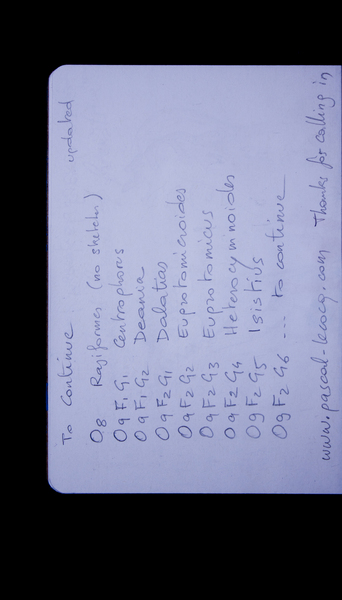 To Continue updated
O8 Rajiformes (no sketches)
O9 F1 G1 Centrophorus
O9 F1 G2 Deania
O9 F2 G1 Dalatias
O9 F2 G2 Euprotomicroides
O9 F2 G3 Euprotomicrus
O9 F2 G4 Heteroscymnoides
O9 F2 G5 Isistius
O9 F2 G6 ... to continue
www.pascal-lecocq.com Thanks for calling in